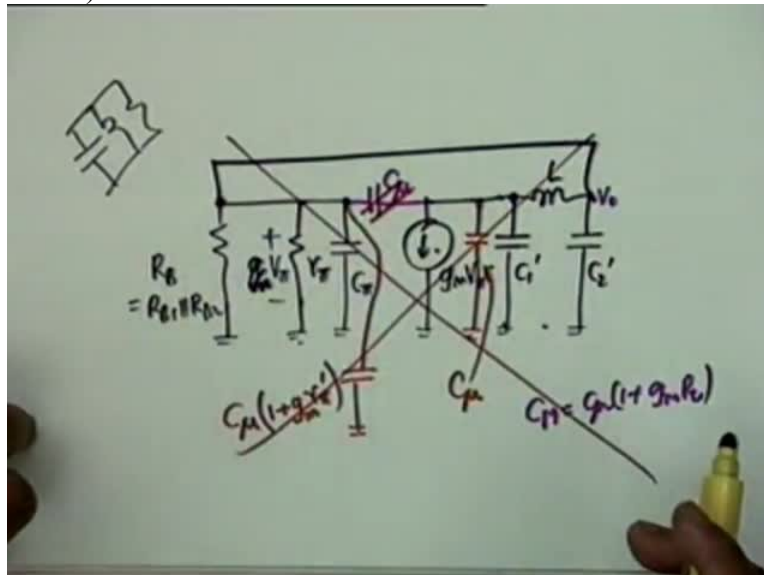 Cμ
L
V₀
R_B
= R_B1 || R_B2
+
V_π
-
r_π
C_π
g_m V_π
C₁'
C₂'
Cμ(1+g_m r_π')
Cμ
C_M = Cμ(1+g_m R_L)